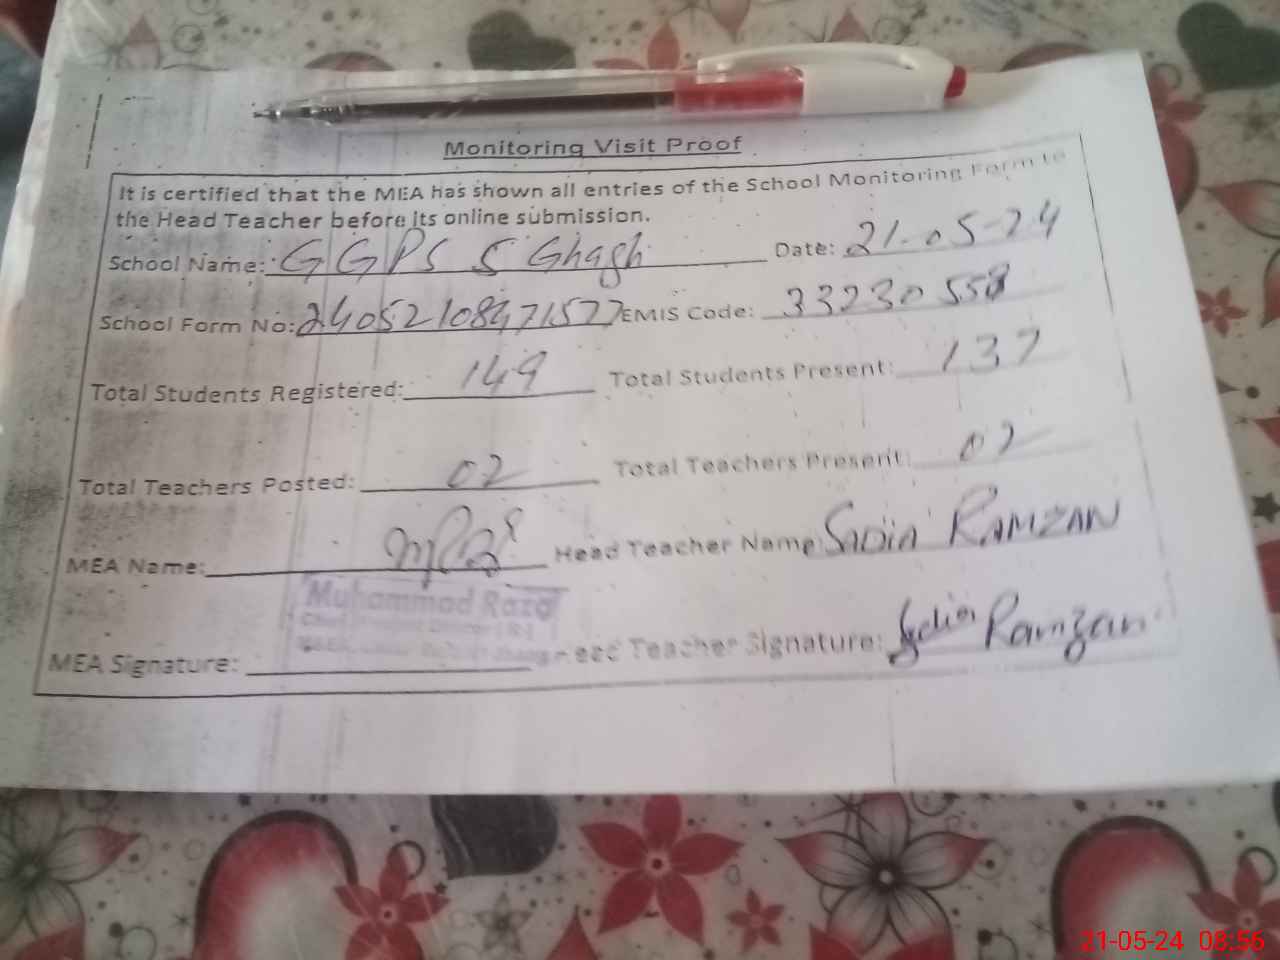 Monitoring Visit Proof
It is certified that the MEA has shown all entries of the School Monitoring Form to
the Head Teacher before its online submission.
School Name: GGPS S Ghagh Date: 21-05-24
School Form No: 24052108471577 EMIS Code: 33230558
Total Students Registered: 149 Total Students Present: 137
Total Teachers Posted: 02 Total Teachers Present: 02
MEA Name: Head Teacher Name: SADIA RAMZAN
Muhammad Raza
MEA Signature: Head Teacher Signature: Sadia Ramzan
21-05-24 08:56